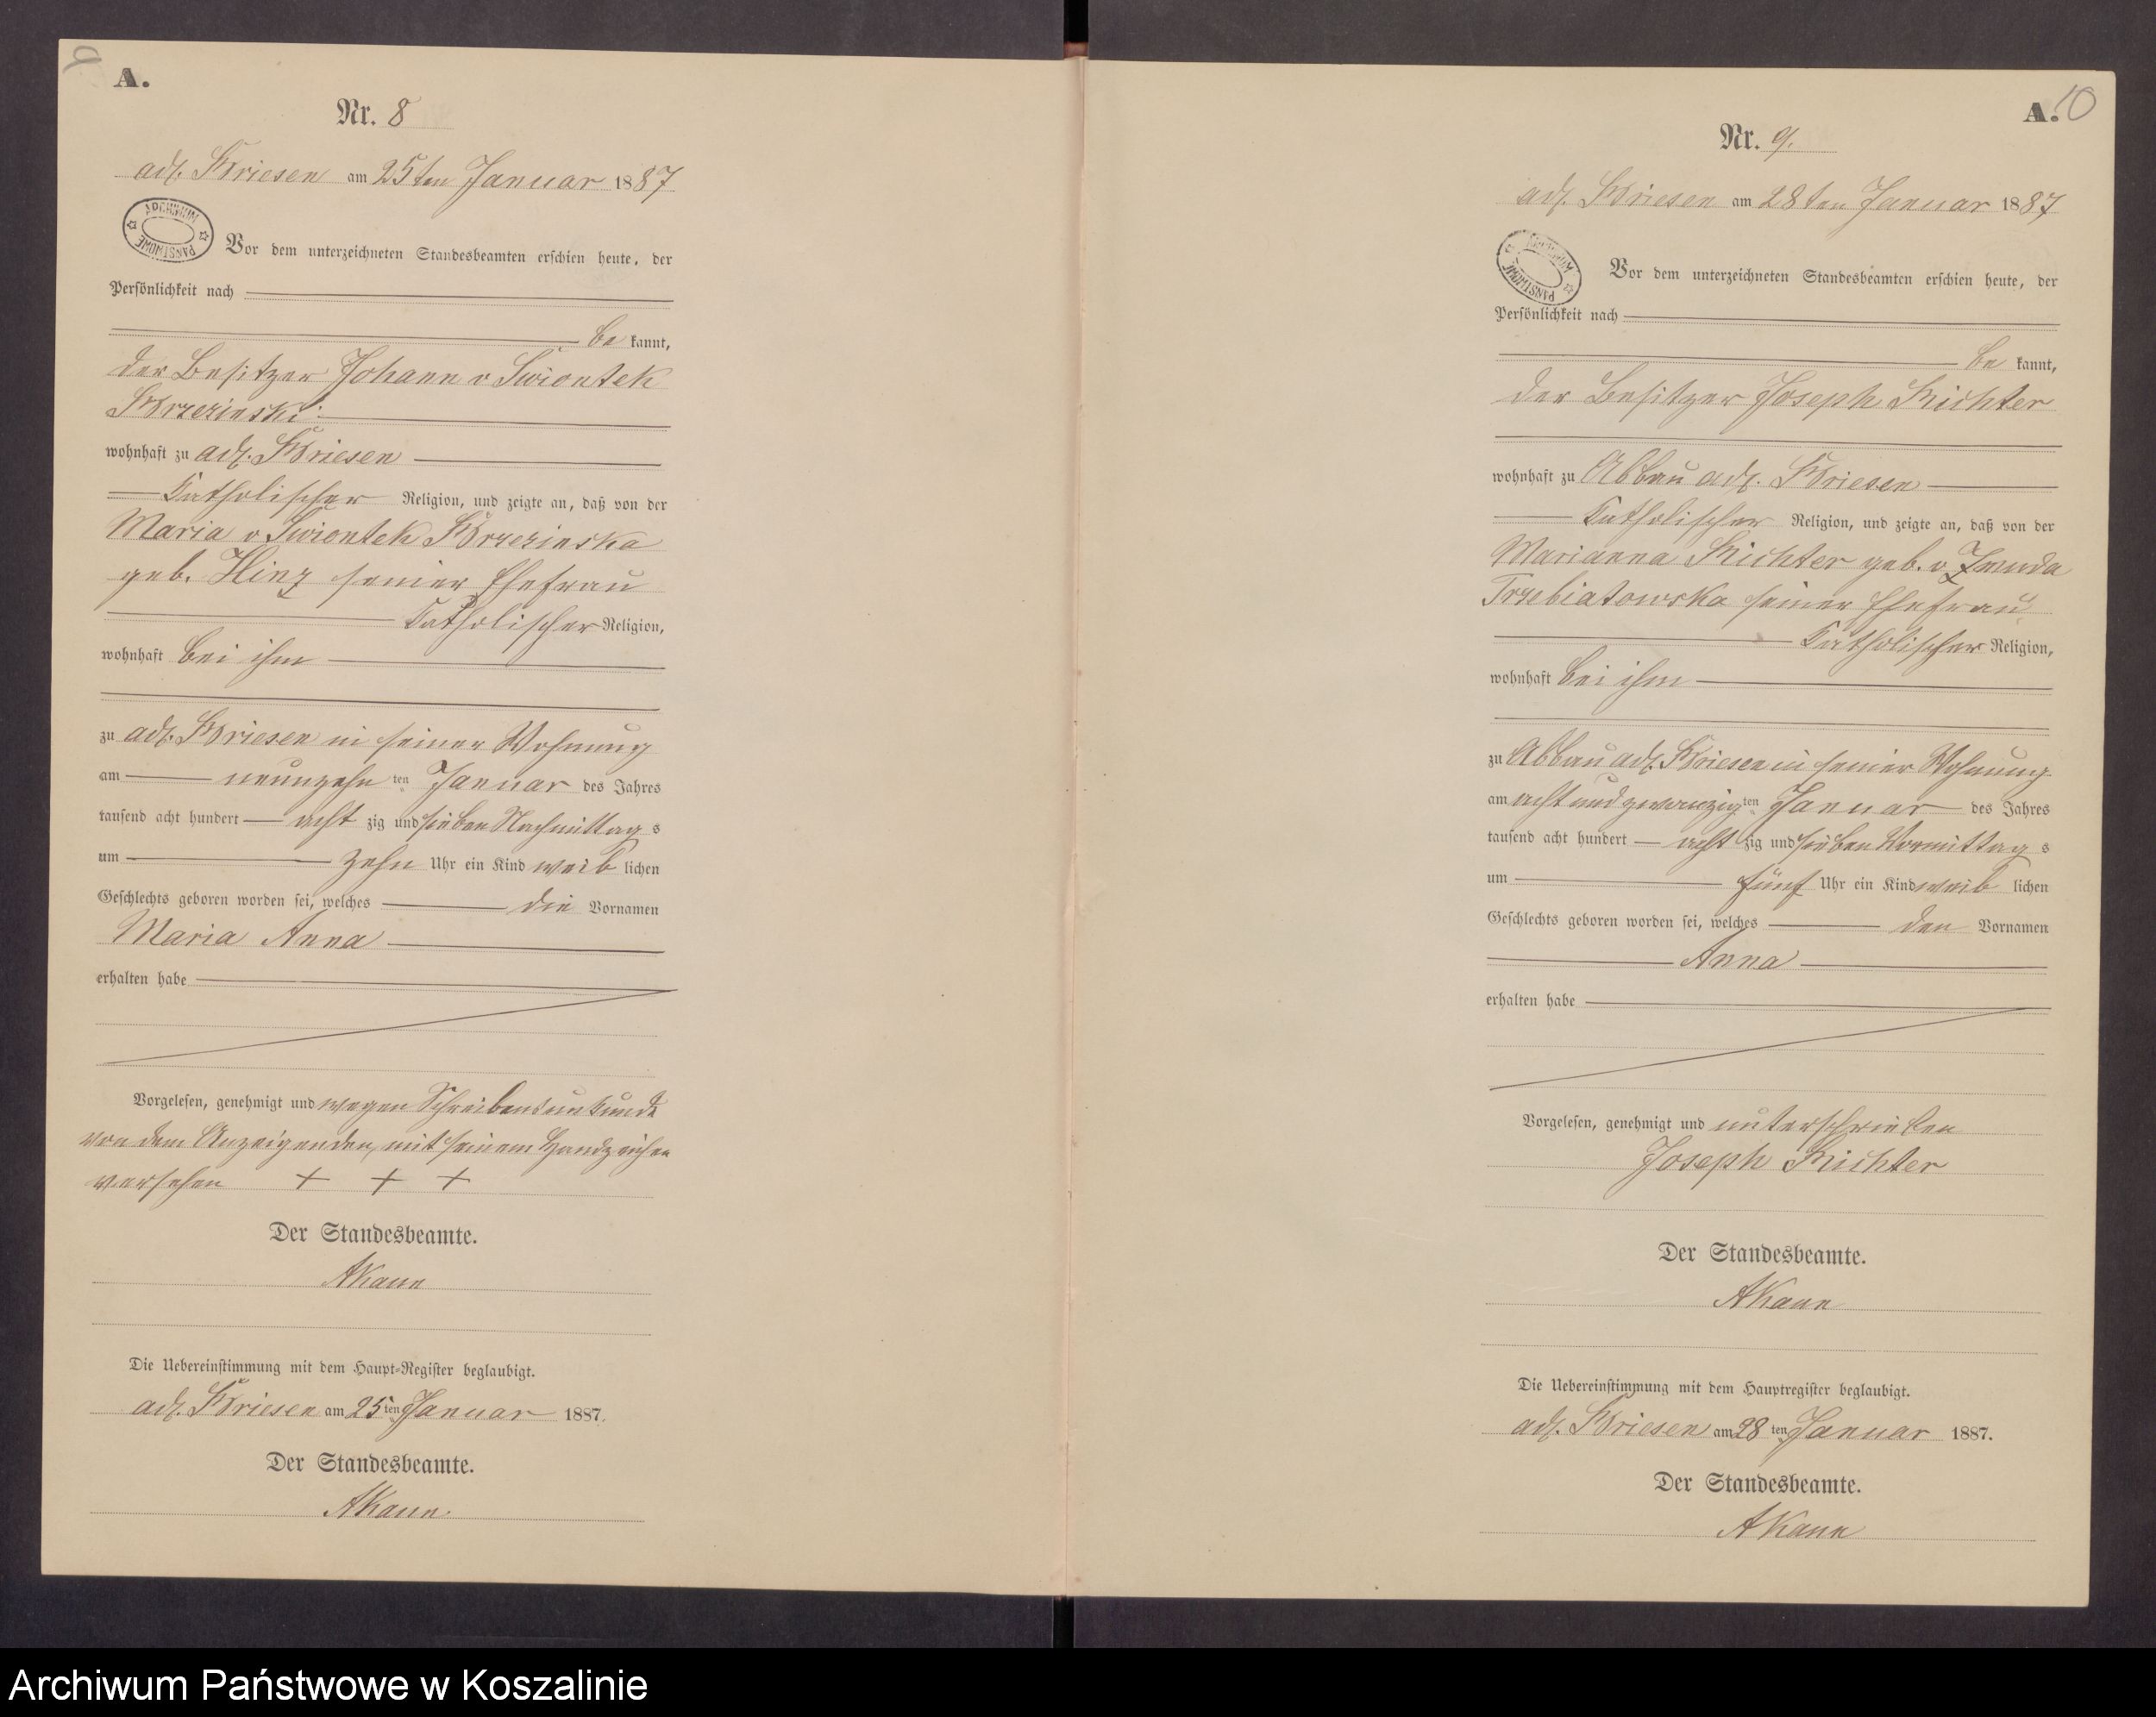 9
A.
Nr. 8
adl. Briesen am 25ten Januar 1887
ARCHIWUM PAŃSTWOWE
Vor dem unterzeichneten Standesbeamten erschien heute, der
Persönlichkeit nach
be kannt,
der Besitzer Johann v Swiontek
Brzezinski
wohnhaft zu adl. Briesen
Katholischer Religion, und zeigte an, daß von der
Maria v Swiontek Brzezinska
geb. Hinz seiner Ehefrau
Katholischer Religion,
wohnhaft bei ihm
zu adl. Briesen in seiner Wohnung
am neunzehn ten Januar des Jahres
tausend acht hundert acht zig und sieben Nachmittag s
um zehn Uhr ein Kind weib lichen
Geschlechts geboren worden sei, welches die Vornamen
Maria Anna
erhalten habe
Vorgelesen, genehmigt und wegen Schreibensunkunde
von dem Anzeigenden, mit seinem Handzeichen
versehen + + +
Der Standesbeamte.
AKaun
Die Uebereinstimmung mit dem Haupt-Register beglaubigt.
adl. Briesen am 25 ten Januar 1887.
Der Standesbeamte.
AKaun
A. 10
Nr. 9.
adl. Briesen am 28ten Januar 1887
ARCHIWUM PAŃSTWOWE
Vor dem unterzeichneten Standesbeamten erschien heute, der
Persönlichkeit nach
be kannt,
der Besitzer Joseph Richter
wohnhaft zu Abbau adl. Briesen
Katholischer Religion, und zeigte an, daß von der
Marianna Richter geb. v Zmuda
Trzebiatowska seiner Ehefrau
Katholischer Religion,
wohnhaft bei ihm
zu Abbau adl. Briesen in seiner Wohnung
am acht und zwanzig ten Januar des Jahres
tausend acht hundert acht zig und sieben Vormittag s
um fünf Uhr ein Kind weib lichen
Geschlechts geboren worden sei, welches den Vornamen
Anna
erhalten habe
Vorgelesen, genehmigt und unterschrieben
Joseph Richter
Der Standesbeamte.
AKaun
Die Uebereinstimmung mit dem Hauptregister beglaubigt.
adl. Briesen am 28 ten Januar 1887.
Der Standesbeamte.
AKaun
Archiwum Państwowe w Koszalinie